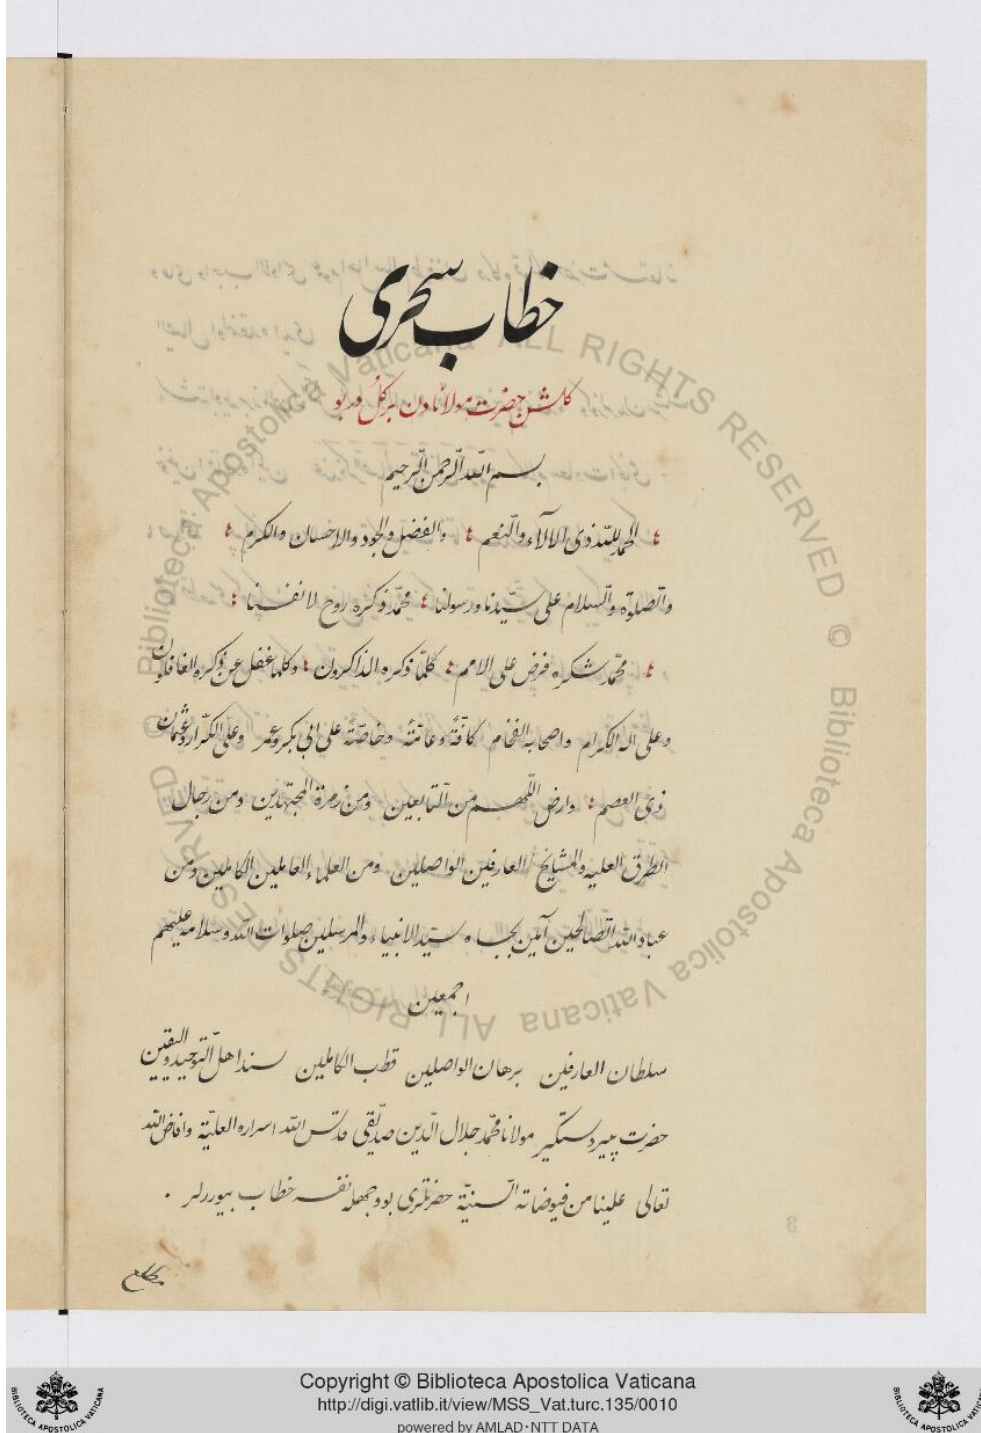 خطاب سحری
كلشن حضرت مولانادن بر كل در بو
بسم الله الرحمن الرحيم
الحمد لله ذی الالآء والنعم ؛ والفضل والجود والاحسان والكرم ؛
والصلوة والسلام علی سيدنا ورسولنا ؛ محمد ذكره روح لانفسنا ؛
؛ محمد شكره فرض علی الامم ؛ كلما ذكره الذاكرون ؛ وكلما غفل عن ذكره الغافلون
وعلی اله الكرام واصحابه الفخام كافةً وعامةً وخاصةً علی ابی بكر وعمر وعلی الكرار وعثمان
ذوی العصم ؛ وارض اللهم من التابعين ومن زمرة المجتهدين ومن رجال
الطرق العليه والمشايخ العارفين الواصلين ومن العلماء العاملين الكاملين ومن
عباد الله الصالحين آمين بجاه سيد الانبياء والمرسلين صلوات الله وسلامه عليهم
اجمعين
سلطان العارفين برهان الواصلين قطب الكاملين سند اهل التوحيد واليقين
حضرت پير دستكير مولانا محمد جلال الدين صديقی قدس الله اسراره العلية وافاض الله
تعالی علينا من فيوضاته السنية حضرتلری بو وجهله نفسه خطاب بيوررلر .
8
Biblioteca Apostolica Vaticana ALL RIGHTS RESERVED © Biblioteca Apostolica Vaticana ALL RIGHTS RESERVED ©
Copyright © Biblioteca Apostolica Vaticana
http://digi.vatlib.it/view/MSS_Vat.turc.135/0010
powered by AMLAD·NTT DATA
BIBLIOTECA APOSTOLICA VATICANA
BIBLIOTECA APOSTOLICA VATICANA